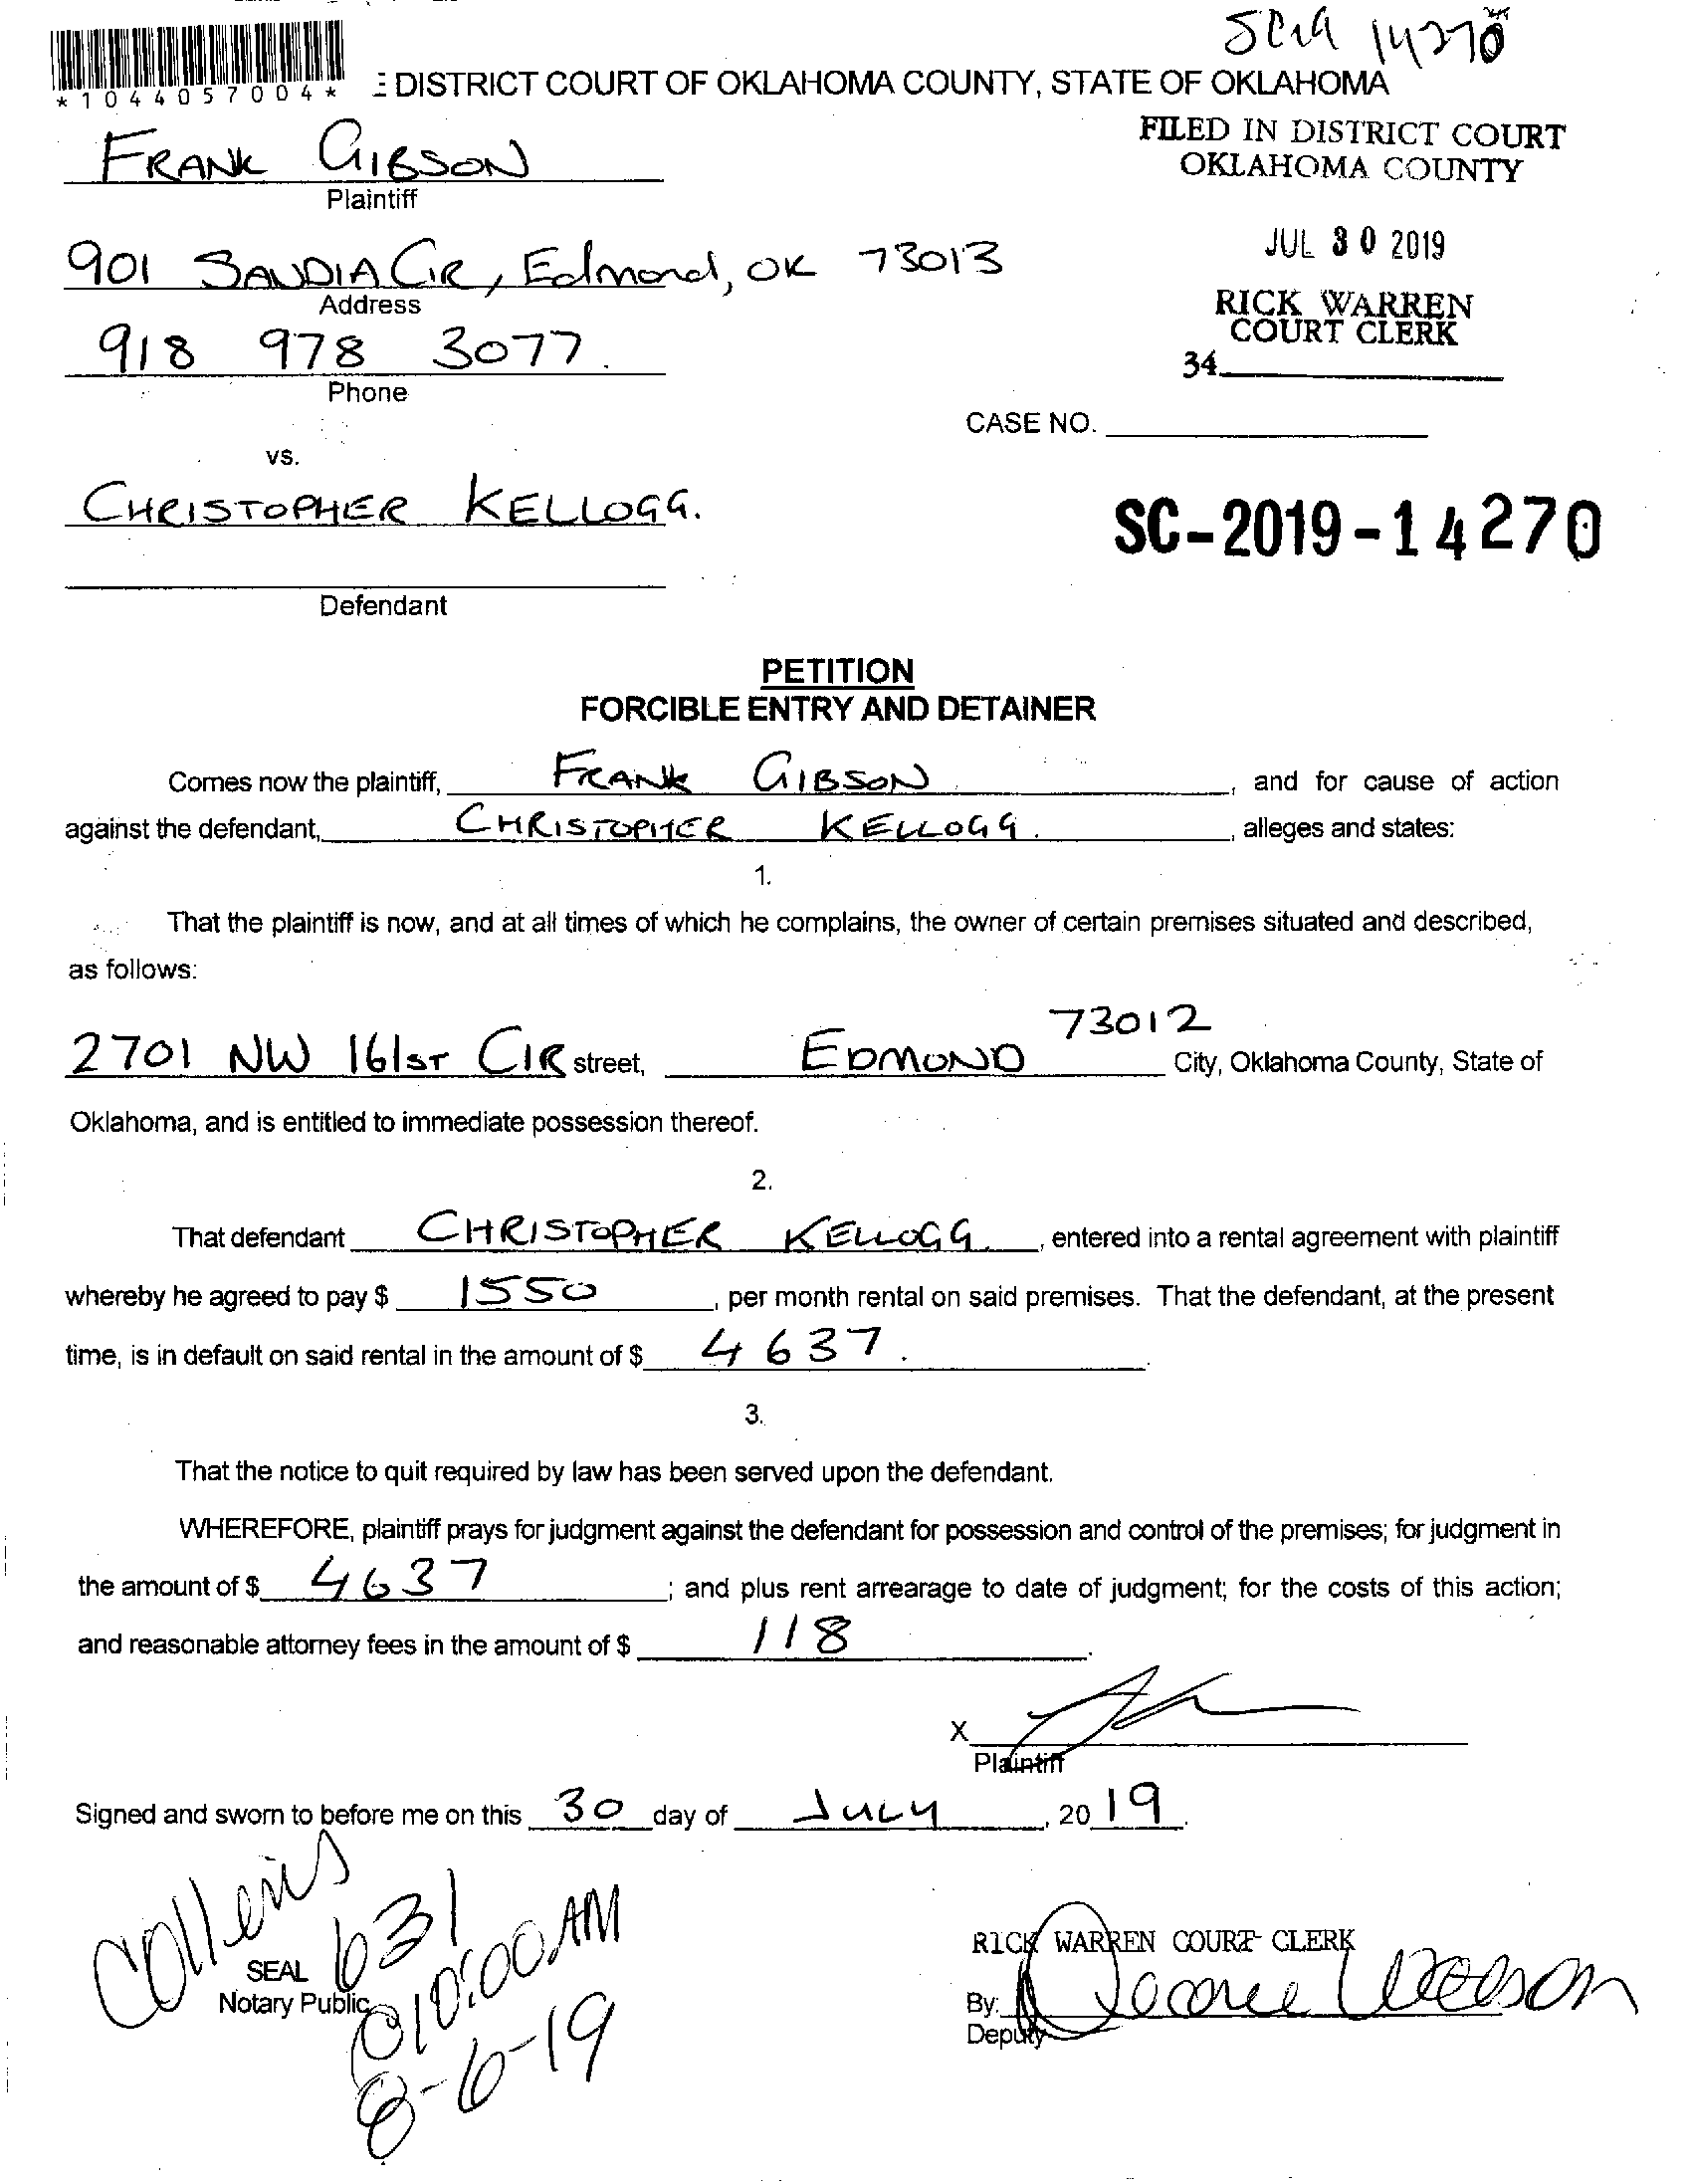 SC19 14270
*1044057004*
E DISTRICT COURT OF OKLAHOMA COUNTY, STATE OF OKLAHOMA
FILED IN DISTRICT COURT
OKLAHOMA COUNTY
FRANK GIBSON
Plaintiff
JUL 30 2019
901 SANDIA CIR, Edmond, OK 73013
Address
RICK WARREN
COURT CLERK
918 978 3077.
34
Phone
CASE NO.
vs.
CHRISTOPHER KELLOGG.
SC-2019-14270
Defendant
PETITION
FORCIBLE ENTRY AND DETAINER
Comes now the plaintiff, FRANK GIBSON, and for cause of action
against the defendant, CHRISTOPHER KELLOGG., alleges and states:
1.
That the plaintiff is now, and at all times of which he complains, the owner of certain premises situated and described,
as follows:
73012
2701 NW 161ST CIR street, EDMOND City, Oklahoma County, State of
Oklahoma, and is entitled to immediate possession thereof.
2.
That defendant CHRISTOPHER KELLOGG., entered into a rental agreement with plaintiff
whereby he agreed to pay $ 1550, per month rental on said premises. That the defendant, at the present
time, is in default on said rental in the amount of $ 4637.
3.
That the notice to quit required by law has been served upon the defendant.
WHEREFORE, plaintiff prays for judgment against the defendant for possession and control of the premises; for judgment in
the amount of $ 4637; and plus rent arrearage to date of judgment; for the costs of this action;
and reasonable attorney fees in the amount of $ 118.
X
Plaintiff
Signed and sworn to before me on this 30 day of JULY, 2019.
631
SEAL
Notary Public
@10:00 AM
8-6-19
RICK WARREN COURT CLERK
By:
Deputy